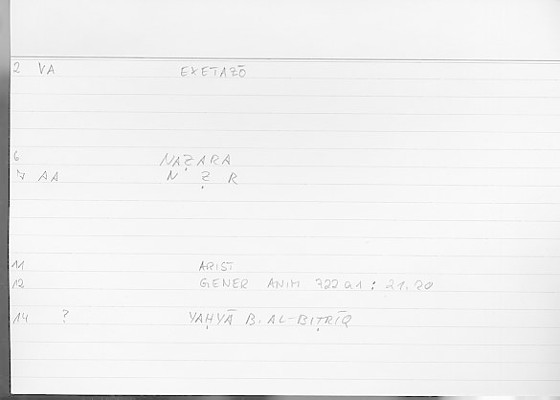 2 VA EXETAZŌ
6 NAẒARA
7 AA N Ẓ R
11 ARIST
12 GENER ANIM 722 a1 : 21.20
14 ? YAḤYĀ B. AL-BIṬRĪQ